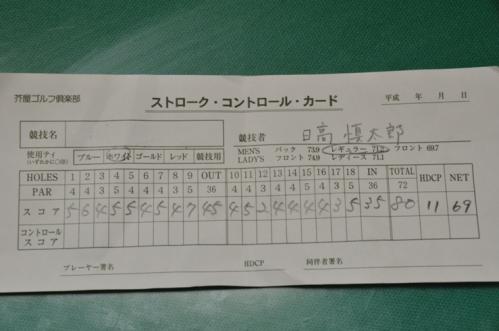 芥屋ゴルフ倶楽部 ストローク・コントロール・カード 平成 年 月 日
競技名 競技者 日高 慎太郎
使用ティ (いずれかに○印) ブルー ホワイト ゴールド レッド 競技用 MEN'S バック 73.9 レギュラー 71.2 フロント 69.7
LADY'S フロント 74.9 レディース 71.1
HOLES 1 2 3 4 5 6 7 8 9 OUT 10 11 12 13 14 15 16 17 18 IN TOTAL HDCP NET
PAR 4 4 3 4 5 4 4 3 5 36 4 4 3 5 4 4 4 3 5 36 72
スコア 5 6 4 5 5 4 5 4 7 45 4 5 2 4 4 4 4 3 5 35 80 11 69
コントロール スコア
プレーヤー署名 HDCP 同伴者署名